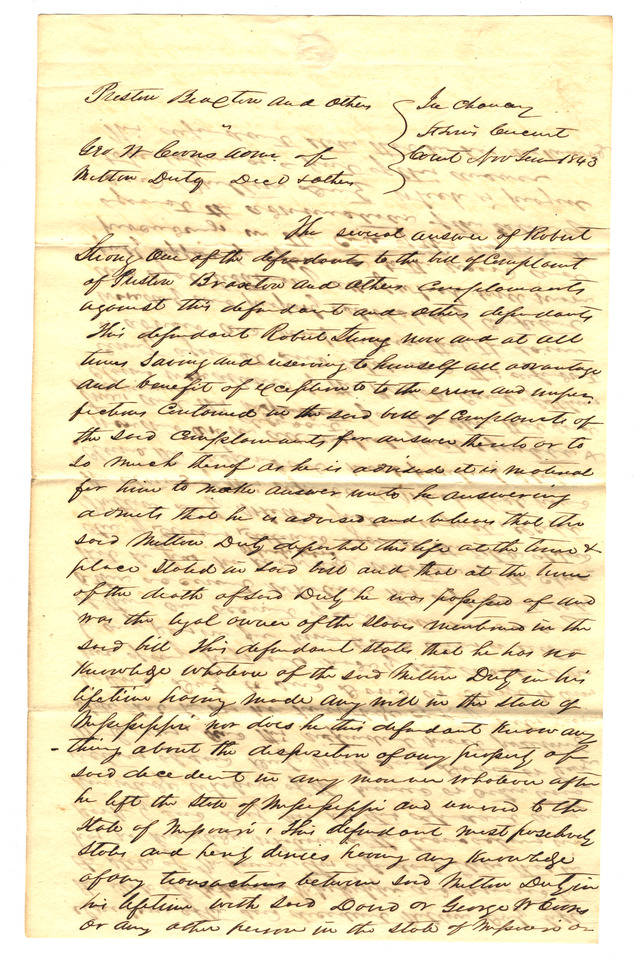 Preston Braxton and others } In Chancery
" } St Louis Circuit
Geo W Coons Admr of } Court Nov Term 1843
Milton Duty Decd & others
The several answer of Robert
Strong one of the defendants to the bill of Complaint
of Preston Braxton and others Complainants
against this defendant and others defendants
This defendant Robert Strong now and at all
times Saving and reserving to himself all advantage
and benefit of exception to to the errors and imper
fections Contained in the said bill of Complaints of
the said Complainants for answer thereto or to
so much thereof as he is advised it is material
for him to make answer unto he answering
admits that he is advised and believes that the
said Milton Duty departed this life at the time &
place Stated in said bill and that at the time
of the death of said Duty he was possessed of and
was the legal owner of the slaves mentioned in the
said bill This defendant states that he has no
Knowledge whatever of the said Milton Duty in his
lifetime having made any will in the state of
Mississippi nor does he this defendant know any
thing about the disposition of any property of
said decedent in any manner whatever after
he left the State of Mississippi and removed to the
State of Missouri, This defendant most positively
states and hereby denies having any Knowledge
of any transactions between said Milton Duty in
his lifetime with said David or George W Coons
or any other person in the state of Missouri or